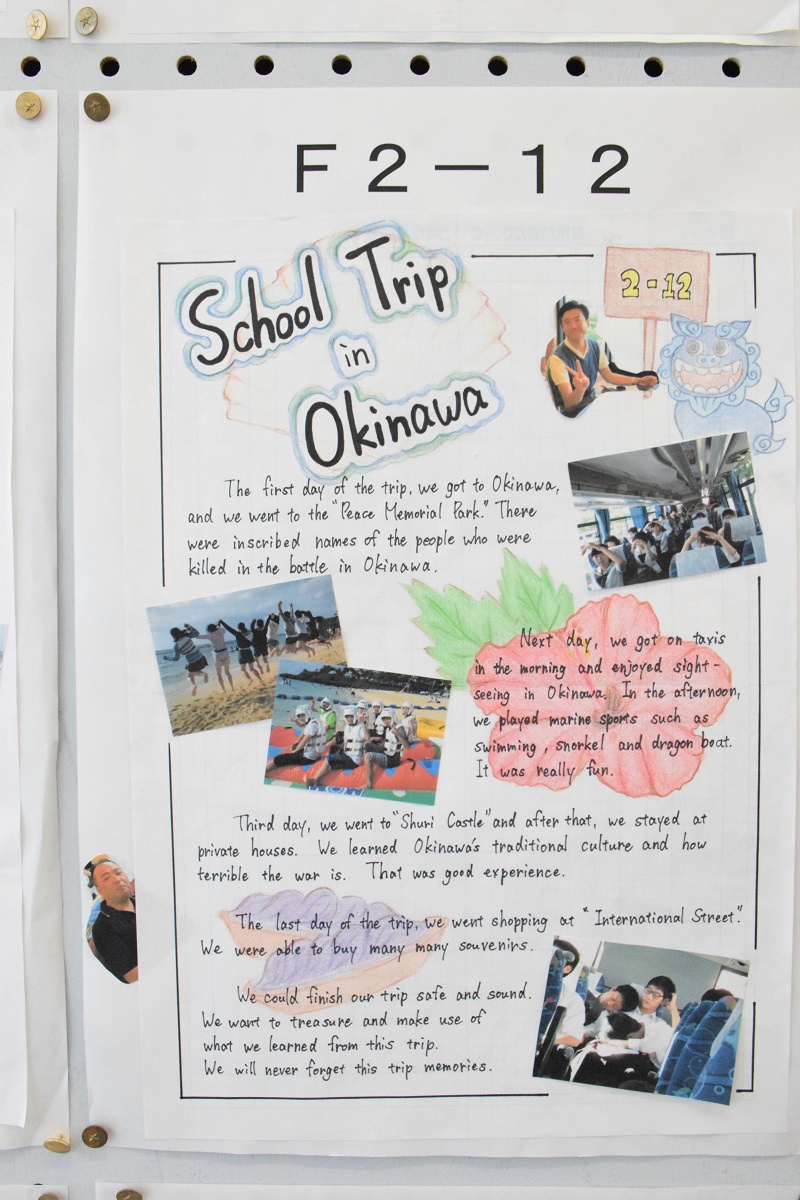 F2-12
School Trip
in
Okinawa
2-12
The first day of the trip, we got to Okinawa,
and we went to the "Peace Memorial Park." There
were inscribed names of the people who were
killed in the battle in Okinawa.
Next day, we got on taxis
in the morning and enjoyed sight-
seeing in Okinawa. In the afternoon,
we played marine sports such as
swimming, snorkel and dragon boat.
It was really fun.
Third day, we went to "Shuri Castle" and after that, we stayed at
private houses. We learned Okinawa's traditional culture and how
terrible the war is. That was good experience.
The last day of the trip, we went shopping at "International Street".
We were able to buy many many souvenirs.
We could finish our trip safe and sound.
We want to treasure and make use of
what we learned from this trip.
We will never forget this trip memories.